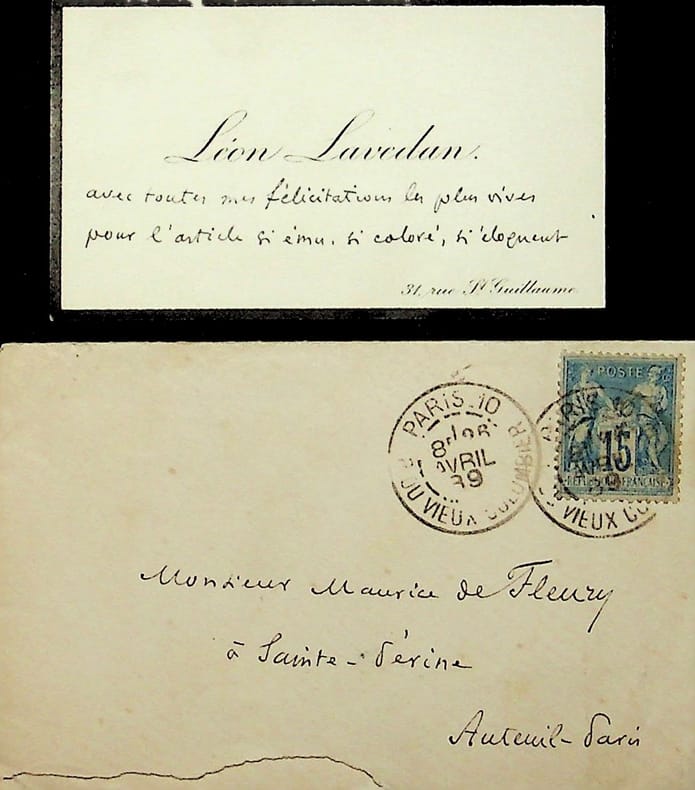 Léon Lavedan.
avec toutes mes félicitations les plus vives
pour l'article si ému, si coloré, si éloquent
31, rue St Guillaume
PARIS.10
8E
AVRIL
89
DU VIEUX COLOMBIER
POSTE
15
PARIS 10
DU VIEUX CO
Monsieur Maurice de Fleury
à Sainte-Périne
Auteuil-Paris